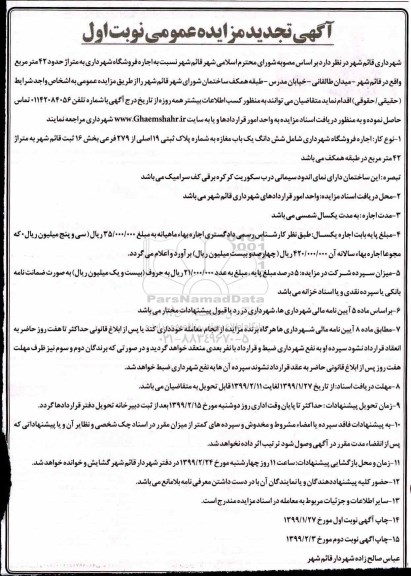 آگهی تجدید مزایده عمومی نوبت اول
شهرداری قائم شهر در نظر دارد بر اساس مصوبه شورای محترم اسلامی شهر قائم شهر نسبت به اجاره فروشگاه شهرداری به متراژ حدود ۴۲ متر مربع
واقع در قائم شهر - میدان طالقانی - خیابان مدرس - طبقه همکف ساختمان شورای شهر قائم شهر را از طریق مزایده عمومی به اشخاص واجد شرایط
(حقیقی / حقوقی) اقدام نماید متقاضیان می توانند به منظور کسب اطلاعات بیشتر همه روزه از تاریخ درج آگهی با شماره تلفن ۰۱۱۴۲۰۸۴۰۵۶ تماس
حاصل نموده و به منظور دریافت اسناد مزایده به واحد امور قراردادها و یا به سایت www.Ghaemshahr.ir شهرداری مراجعه نمایند
۱- نوع کار: اجاره فروشگاه شهرداری شامل شش دانگ یک باب مغازه به شماره پلاک ثبتی ۱۹ اصلی از ۲۷۹ فرعی بخش ۱۶ ثبت قائم شهر به متراژ
۴۲ متر مربع در طبقه همکف می باشد
تبصره: این ساختمان دارای نمای اندود سیمانی درب سکوریت کرکره برقی کف سرامیک می باشد
۲- محل دریافت اسناد مزایده: واحد امور قراردادهای شهرداری قائم شهر می باشد
۳- مدت اجاره: به مدت یکسال شمسی می باشد
۴- مبلغ پایه بابت اجاره یکسال: طبق نظر کارشناس رسمی دادگستری اجاره بهاء ماهیانه به مبلغ ۳۵/۰۰۰/۰۰۰ ریال (سی و پنج میلیون ریال) که
مجموعا اجاره بهاء سالانه آن ۴۲۰/۰۰۰/۰۰۰ ریال (چهارصد و بیست میلیون ریال) برآورد و اعلام می گردد.
۵- میزان سپرده شرکت در مزایده: ۵ درصد مبلغ پایه، مبلغ به عدد ۲۱/۰۰۰/۰۰۰ ریال به حروف (بیست و یک میلیون ریال) به صورت ضمانت نامه
بانکی یا سپرده نقدی و یا اسناد خزانه می باشد
۶- بر اساس ماده ۵ آیین نامه مالی شهرداری ها، شهرداری در رد یا قبول پیشنهادات مختار می باشد
۷- مطابق ماده ۸ آیین نامه مالی شهرداری ها هرگاه برنده مزایده از انجام معامله خودداری کند یا پس از ابلاغ قانونی حداکثر تا هفت روز حاضر به
انعقاد قرارداد نشود سپرده او به نفع شهرداری ضبط و قرارداد با نفر بعدی منعقد خواهد گردید و در صورتی که برندگان دوم و سوم نیز ظرف مهلت
هفت روز پس از ابلاغ قانونی حاضر به عقد قرارداد نشوند سپرده آن ها به نفع شهرداری ضبط خواهد شد.
۸- مهلت دریافت اسناد: از تاریخ ۱۳۹۹/۱/۲۷ لغایت ۱۳۹۹/۲/۱۱ قابل تحویل به متقاضیان می باشد.
۹- زمان تحویل پیشنهادات: حداکثر تا پایان وقت اداری روز دوشنبه مورخ ۱۳۹۹/۲/۱۵ بعد از ثبت دبیرخانه تحویل دفتر قراردادها گردد.
۱۰- به پیشنهادات فاقد سپرده یا امضاء مشروط و مخدوش و سپرده های کمتر از میزان مقرر در اسناد چک شخصی و نظایر آن و یا پیشنهاداتی که
پس از انقضاء مدت مقرر در آگهی وصول شود ترتیب اثر داده نخواهد شد.
۱۱- زمان و محل بازگشایی پیشنهادات: ساعت ۱۱ روز چهارشنبه مورخ ۱۳۹۹/۲/۲۴ در دفتر شهردار قائم شهر گشایش و خوانده خواهد شد.
۱۲- حضور کلیه پیشنهاد دهندگان و یا نمایندگان آن با در دست داشتن معرفی نامه بلامانع می باشد.
۱۳- سایر اطلاعات و جزئیات مربوط به معامله در اسناد مزایده مندرج است.
۱۴- چاپ آگهی نوبت اول مورخ ۱۳۹۹/۱/۲۷
۱۵- چاپ آگهی نوبت دوم مورخ ۱۳۹۹/۲/۳
عباس صالح زاده شهردار قائم شهر
ParsNamadData
۰۲۱-۸۸۳۴۹۶۷۰-۵